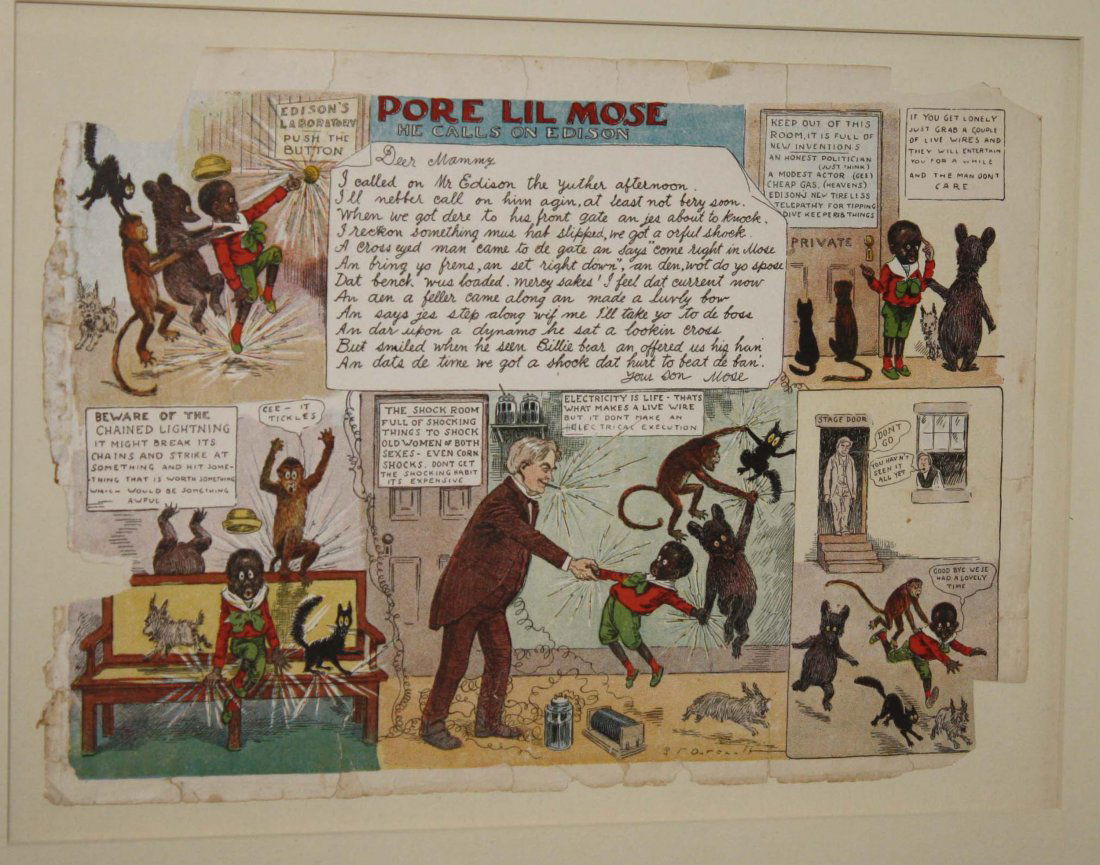 EDISON'S
LABORATORY
PUSH THE
BUTTON
PORE LIL MOSE
HE CALLS ON EDISON
Deer Mammy
I called on Mr Edison the yuther afternoon.
I'll nebber call on him agin, at least not bery soon.
When we got dere to his front gate an jes about to knock.
I reckon something mus hab slipped, we got a orful shock.
A cross eyed man came to de gate an says "come right in Mose
An bring yo frens, an set right down, an den, wot do yo spose
Dat bench. wus loaded. mercy sakes' I feel dat current now
An den a feller came along an made a luvly bow
An says jes step along wif me I'll take yo to de boss
An dar upon a dynamo he sat a lookin cross
But smiled when he seen Billie bear an offered us his han'
An dats de time we got a shock dat hurt to beat de ban'.
Your Son Mose
KEEP OUT OF THIS
ROOM, IT IS FULL OF
NEW INVENTIONS
AN HONEST POLITICIAN
(JUST THINK)
A MODEST ACTOR (GEE)
CHEAP GAS. (HEAVENS)
EDISON'S NEW TIRELESS
TELEPATHY FOR TIPPING
DIVE KEEPERIB THINGS
PRIVATE
IF YOU GET LONELY
JUST GRAB A COUPLE
OF LIVE WIRES AND
THEY WILL ENTERTAIN
YOU FOR A WHILE
AND THE MAN DONT
CARE
BEWARE OF THE
CHAINED LIGHTNING
IT MIGHT BREAK ITS
CHAINS AND STRIKE AT
SOMETHING AND HIT SOME-
-THING THAT IS WORTH SOMETHING
WHICH WOULD BE SOMETHING
AWFUL
GEE - IT
TICKLES
THE SHOCK ROOM
FULL OF SHOCKING
THINGS TO SHOCK
OLD WOMEN OF BOTH
SEXES - EVEN CORN
SHOCKS. DONT GET
THE SHOCKING HABIT
ITS EXPENSIVE
ELECTRICITY IS LIFE - THATS
WHAT MAKES A LIVE WIRE
BUT IT DONT MAKE AN
ELECTRICAL EXECUTION
STAGE DOOR
DONT
GO
YOU HAVN'T
SEEN IT
ALL YET
GOOD BYE WE'SE
HAD A LOVELY
TIME